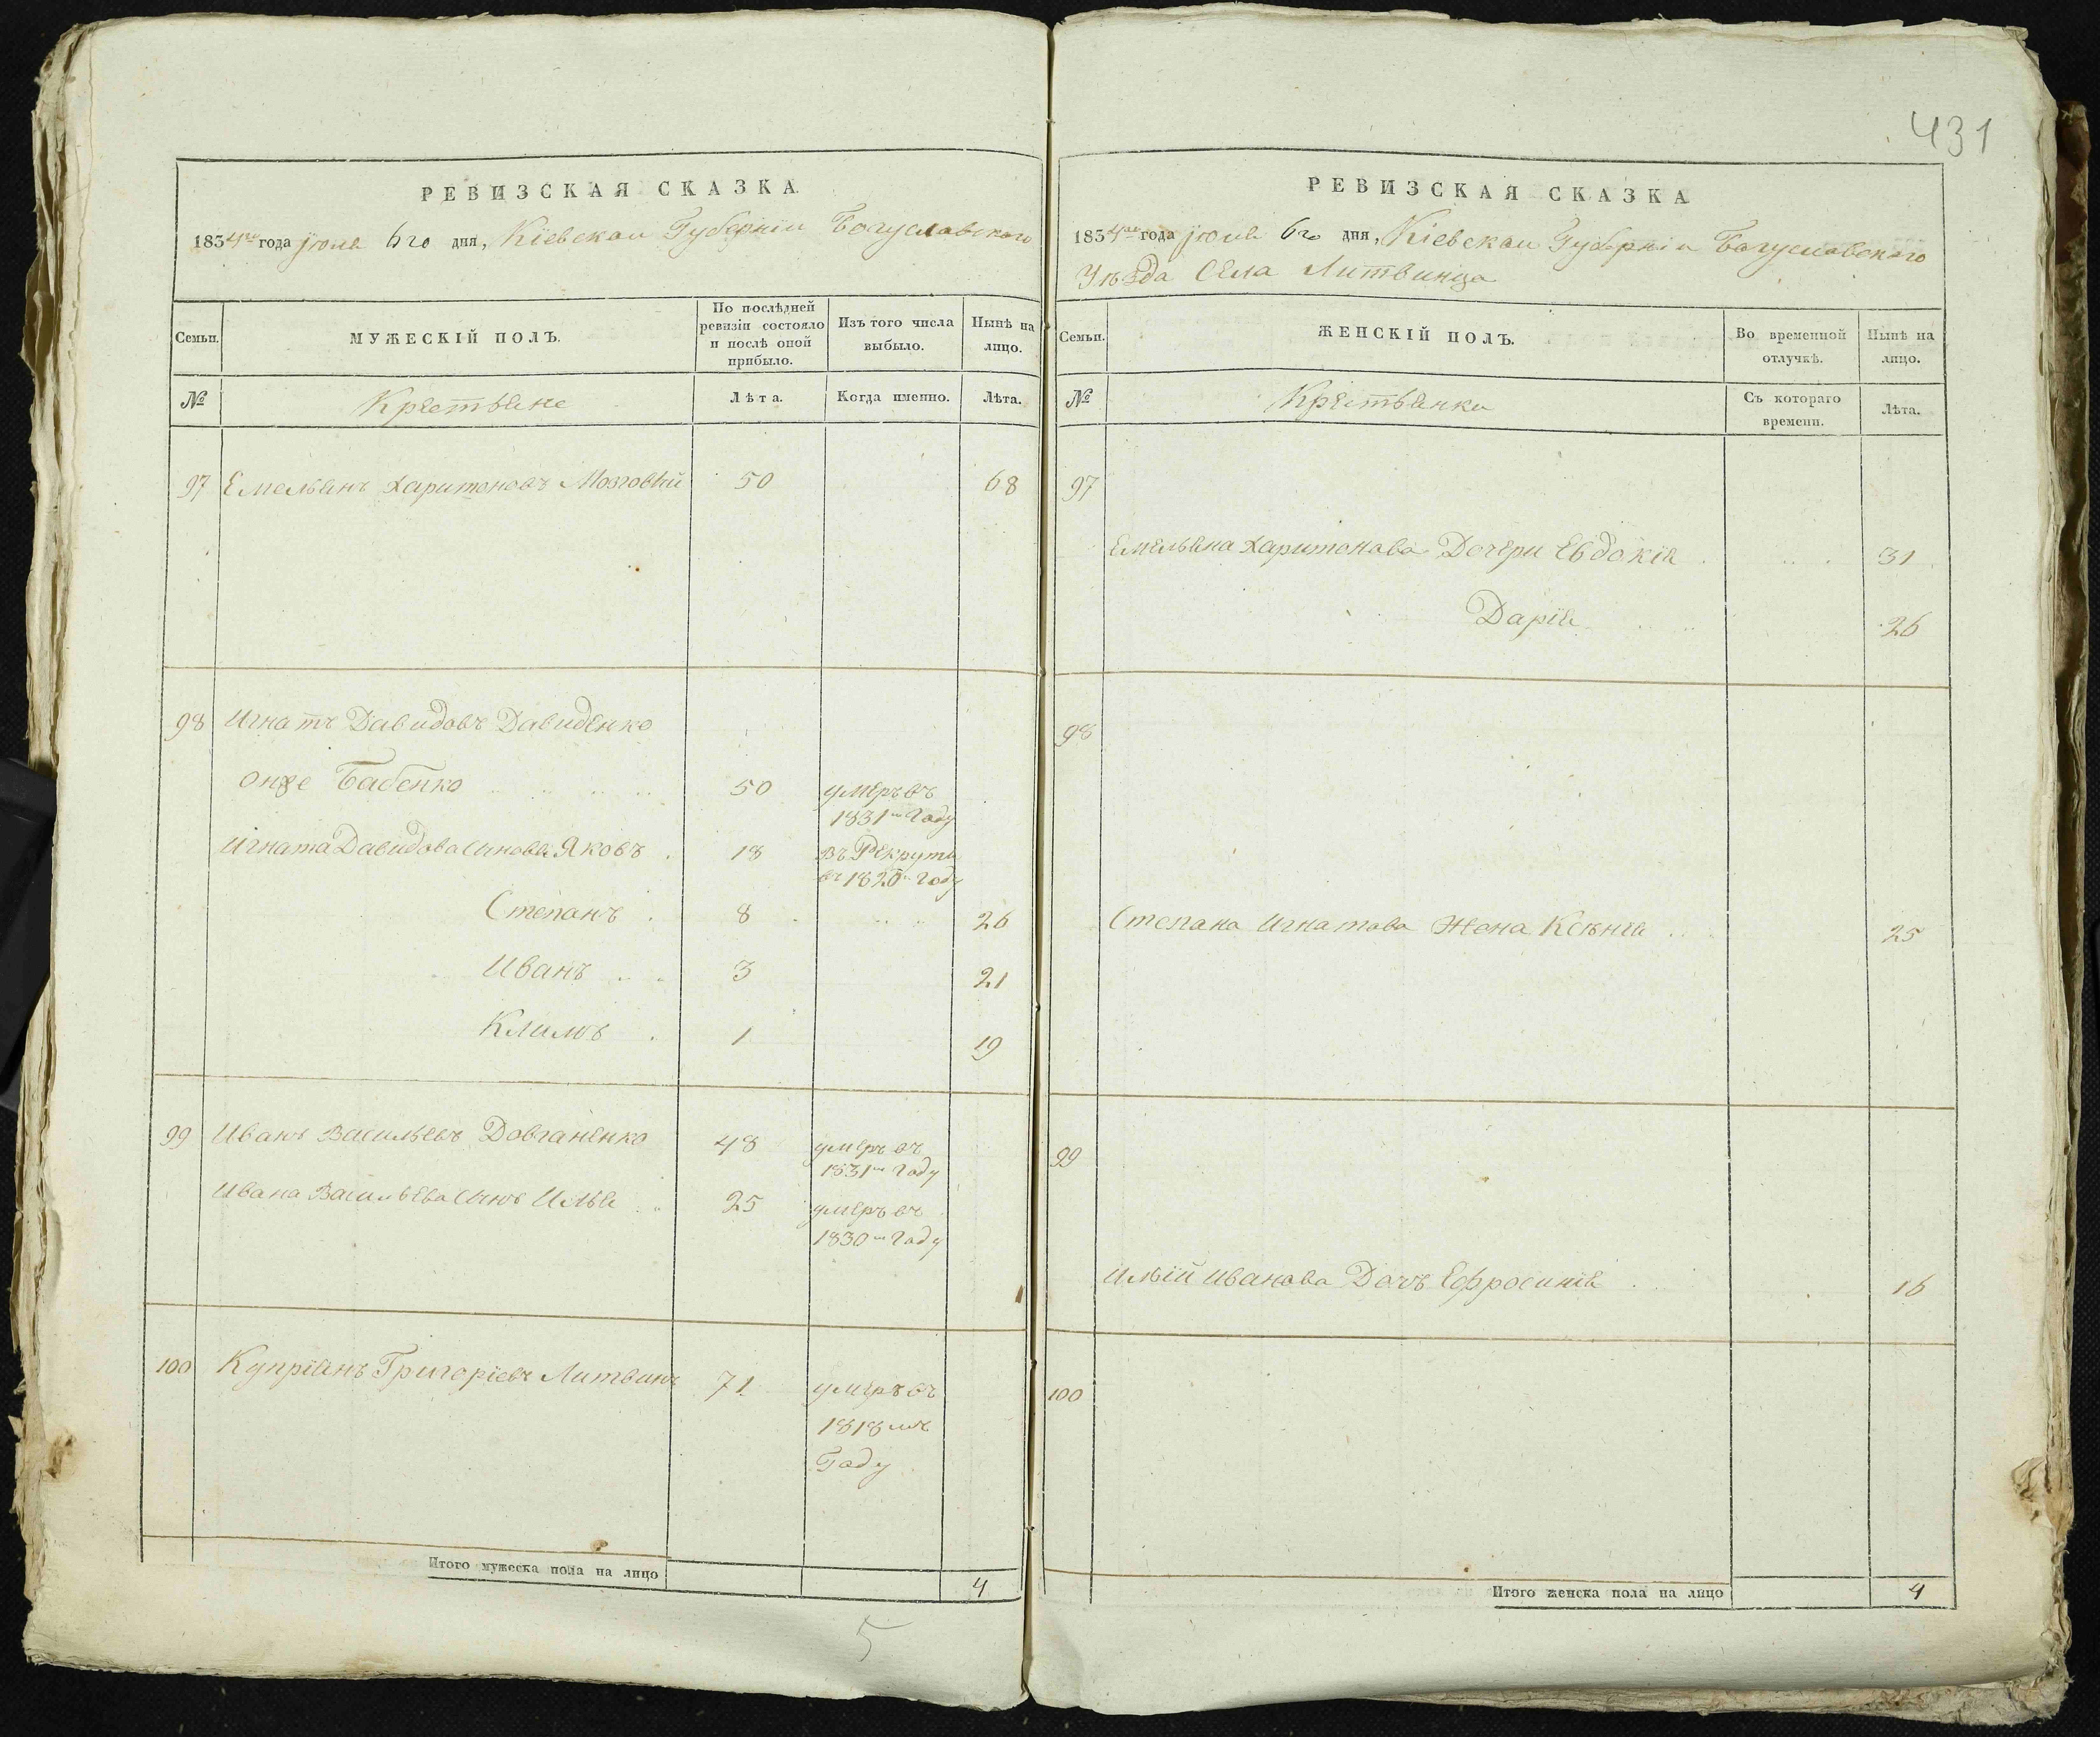 431
РЕВИЗСКАЯ СКАЗКА
1834го года июля 6го дня, Кіевской Губерніи Богуславского
Семьи. МУЖЕСКІЙ ПОЛЪ. По послѣдней ревизіи состояло и послѣ оной прибыло. Изъ того числа выбыло. Нынѣ на лицо.
№ Крестьяне Лѣта. Когда именно. Лѣта.
97 Емельянъ Харитоновъ Мозговый 50 68
98 Игнатъ Давидовъ Давиденко
онже Бабенко 50 умеръ въ
1831мъ Году
Игната Давидова Синовя Яковъ 18 въ Рекруты
въ 1820м Году
Степанъ 8 26
Иванъ 3 21
Климъ 1 19
99 Иванъ Васильевъ Довганенко 48 умеръ въ
1831мъ Году
Ивана Васильева Синъ Илья 25 умеръ въ
1830мъ Году
100 Купріянъ Григоріевъ Литвинъ 71 умеръ въ
1818мъ
Году
Итого мужеска пола на лицо 4
5
РЕВИЗСКАЯ СКАЗКА
1834го года июля 6го дня, Кіевской Губерніи Богуславского
Уѣзда Села Литвинца
Семьи. ЖЕНСКІЙ ПОЛЪ. Во временной отлучкѣ. Нынѣ на лицо.
№ Крестьянки Съ котораго времени. Лѣта.
97
Емельяна Харитонова Дочери Евдокія 31
Дарія 26
98
Степана Игнатова Жена Ксѣнія 25
99
Илій Иванова Дочъ Ефросинія 16
100
Итого женска пола на лицо 4